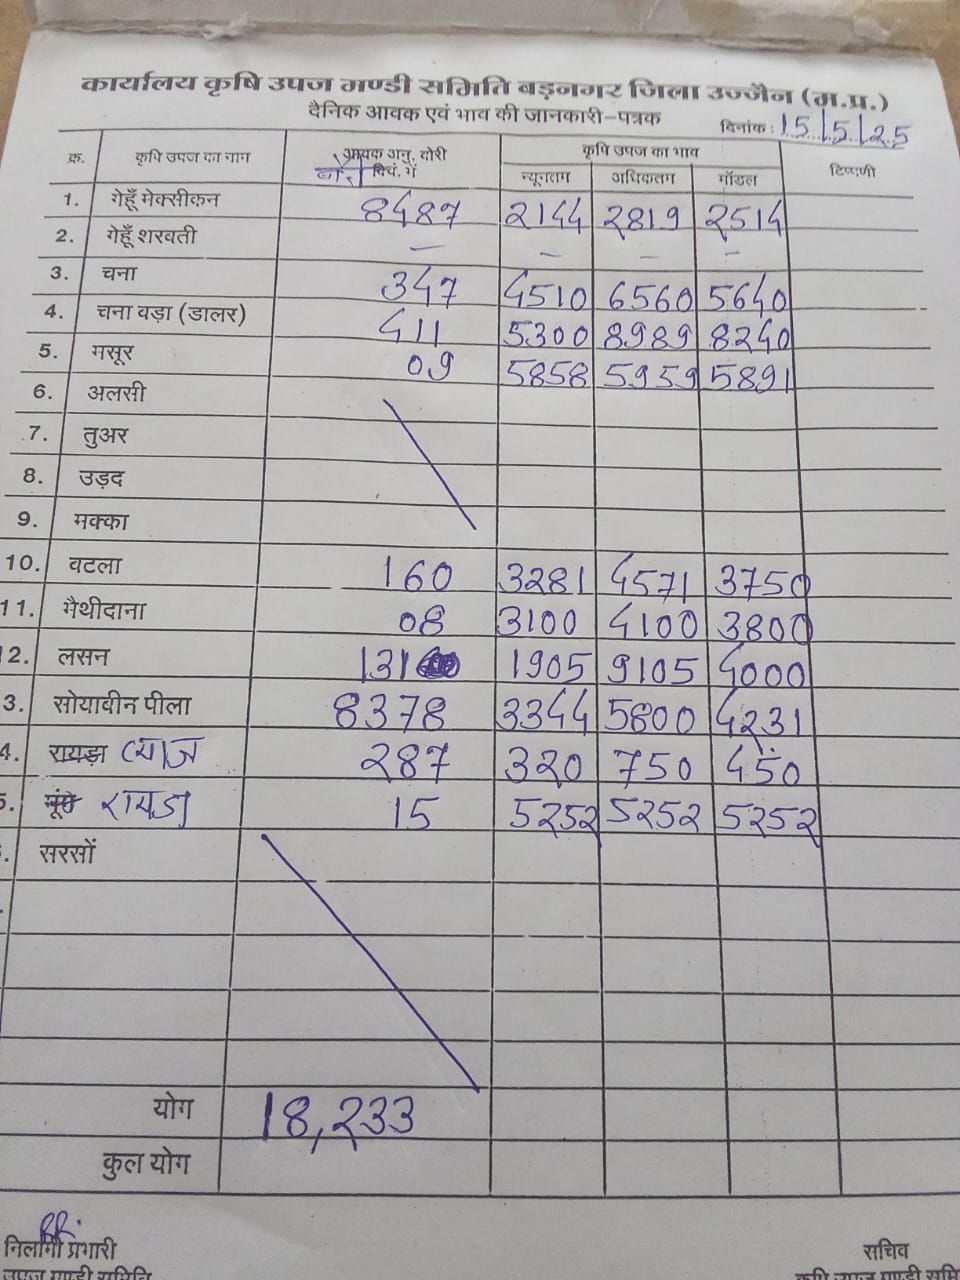 कार्यालय कृषि उपज मण्डी समिति बड़नगर जिला उज्जैन (म.प्र.)
दैनिक आवक एवं भाव की जानकारी-पत्रक
दिनांक : 15/5/25
क्र. कृषि उपज का नाम आवक अनु. बोरी क्विं. में कृषि उपज का भाव टिप्पणी
न्यूनतम अधिकतम मॉडल
1. गेहूँ मेक्सीकन 8487 2144 2819 2514
2. गेहूँ शरवती — — — —
3. चना 347 4510 6560 5640
4. चना वड़ा (डालर) 411 5300 8989 8240
5. मसूर 09 5858 5959 5891
6. अलसी
7. तुअर
8. उड़द
9. मक्का
10. वटला 160 3281 4571 3750
11. मैथीदाना 08 3100 4100 3800
12. लसन 131 1905 9105 4000
3. सोयावीन पीला 8378 3344 5800 4231
4. रायड़ा प्याज 287 320 750 450
5. मूंग रायडा 15 5252 5252 5252
. सरसों
योग 18,233
कुल योग
निलामी प्रभारी सचिव
उपज मण्डी समिति कृषि उपज मण्डी समि